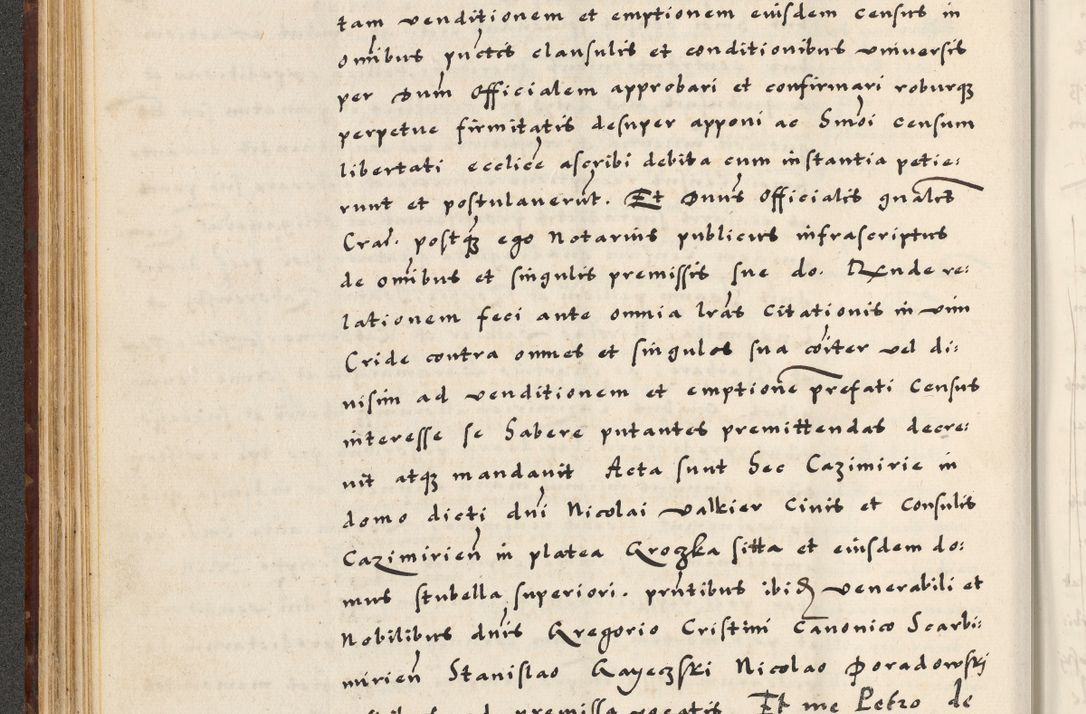 tam venditionem et emptionem eiusdem census in
om̄ibus pūctis clausulis et conditionibus vniuersis
per Dūm Officialem approbari et confirmari roburqꝫ
perpetue firmitatis desuper apponi ac Sm̄oi censum
libertati eccliȩ ascribi debita cum instantia petie:
runt et postulauerūt. Et Dn̄us Officialis gnalis
Crac̄. postqꝫ ego Notarius publicus infrascriptus
de om̄ibus et singulis premissis sue do. Rnde re:
lationem feci ante omnia lrās citationis in vim
Cride contra omnes et singulos sua cōiter vel di:
uisim ad venditionem et emptionē prefati Census
interesse se habere putantes premittendas decre:
uit atqꝫ mandauit Acta sunt hec Cazimirie in
domo dicti dn̄i Nicolai valkier Ciuis et Consulis
Cazimirien̄ in platea Groczka sitta et eiusdem do:
mus stubella superiori. pn̄tibus ibid̄ venerabili et
Nobilibus dn̄is Gregorio Cristini Canonico Scarbi:
mirien̄ Stanislao Gayeczski Nicolao Poradowski
premissa vocatis Et me Petro de